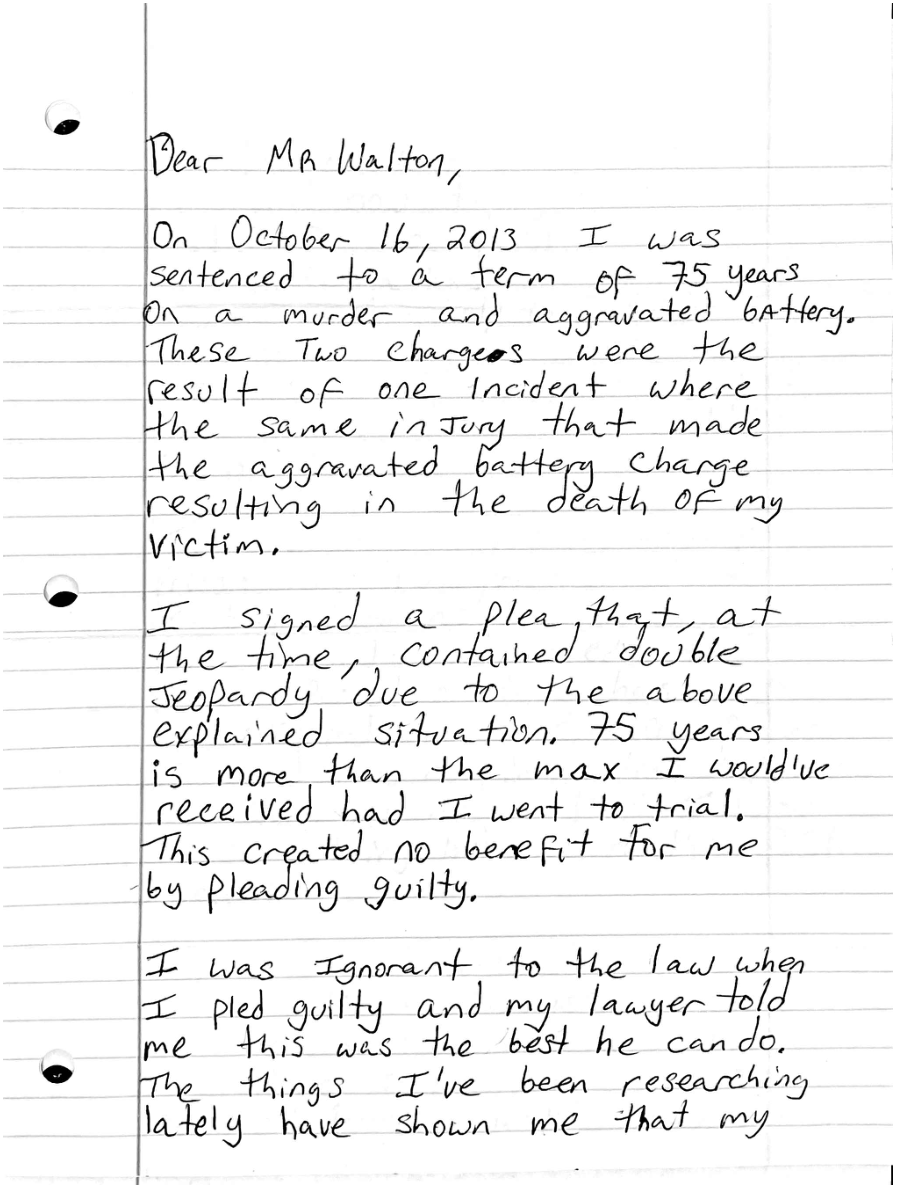 Dear MR Walton,
On October 16, 2013 I was
sentenced to a term of 75 years
On a murder and aggravated bAttery.
These Two Charges were the
result of one Incident where
the same inJury that made
the aggravated battery Charge
resulting in the death OF my
Victim.
I signed a Plea, that, at
the time, Contained double
Jeopardy due to the above
explained situation. 75 years
is more than the max I would've
received had I went to trial.
This created no benefit for me
by pleading guilty.
I was Ignorant to the law when
I pled guilty and my lawyer told
me this was the best he can do.
The things I've been researching
lately have shown me that my